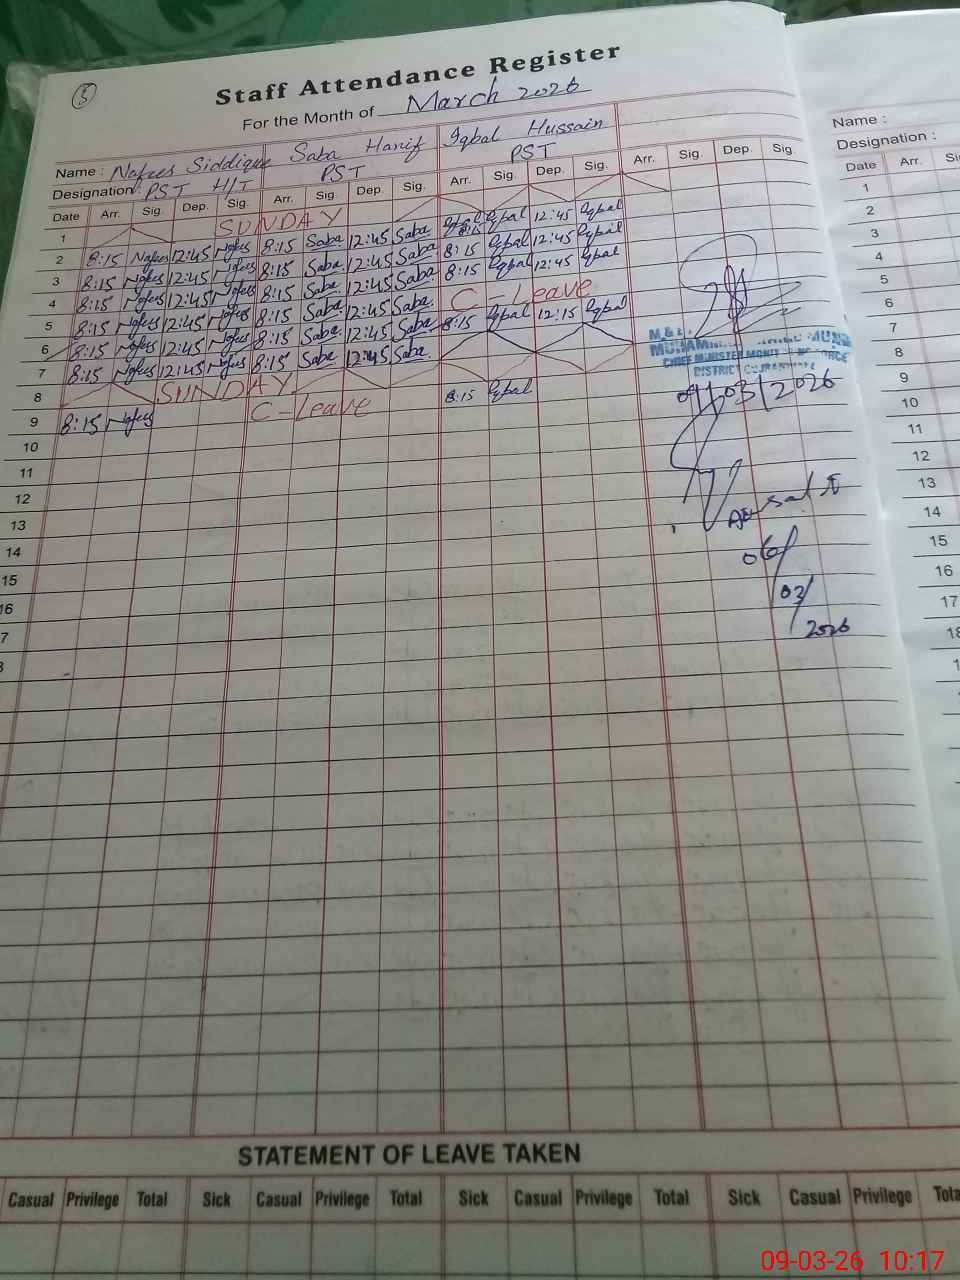 5
Staff Attendance Register
For the Month of March 2026
Name : Nafees Siddique Saba Hanif Iqbal Hussain
Designation : PST H/T PST PST
Date Arr. Sig. Dep. Sig. Arr. Sig. Dep. Sig. Arr. Sig. Dep. Sig. Arr. Sig. Dep. Sig.
1 SUNDAY
2 8:15 Nafees 12:45 Nafees 8:15 Saba 12:45 Saba 8:15 Iqbal 12:45 Iqbal
3 8:15 Nafees 12:45 Nafees 8:15 Saba 12:45 Saba 8:15 Iqbal 12:45 Iqbal
4 8:15 Nafees 12:45 Nafees 8:15 Saba 12:45 Saba 8:15 Iqbal 12:45 Iqbal
5 8:15 Nafees 12:45 Nafees 8:15 Saba 12:45 Saba C - Leave
6 8:15 Nafees 12:45 Nafees 8:15 Saba 12:45 Saba 8:15 Iqbal 12:15 Iqbal
7 8:15 Nafees 12:45 Nafees 8:15 Saba 12:45 Saba
8 SUNDAY
9 8:15 Nafees C - Leave 8:15 Iqbal
10
11
12
13
14
15
16
7
8
CHIEF MINISTER
DISTRICT
09/03/2026
06/
03/
2026
STATEMENT OF LEAVE TAKEN
Casual Privilege Total Sick Casual Privilege Total Sick Casual Privilege Total Sick Casual Privilege
Name :
Designation :
Date Arr.
1
2
3
4
5
6
7
8
9
10
11
12
13
14
15
16
17
09-03-26 10:17